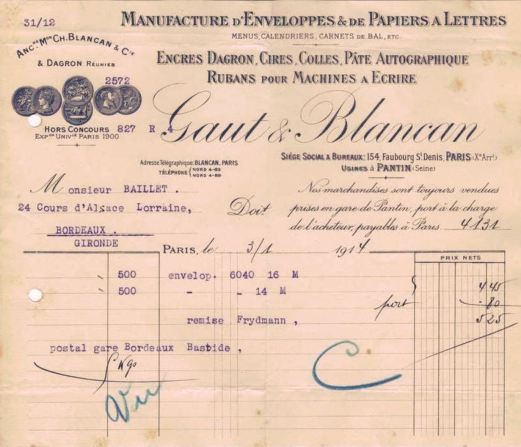 31/12
MANUFACTURE D'ENVELOPPES & DE PAPIERS A LETTRES
MENUS, CALENDRIERS, CARNETS DE BAL, ETC.
ANC^NE M^ON CH. BLANCAN & C^IE
& DAGRON RÉUNIES
ENCRES DAGRON, CIRES, COLLES, PÂTE AUTOGRAPHIQUE
RUBANS POUR MACHINES A ECRIRE
2572
HORS CONCOURS 827 R 4
EXP^ON UNIV^LLE PARIS 1900
Gaut & Blancan
Adresse Télégraphique: BLANCAN, PARIS
TÉLÉPHONE { NORD 4-83
NORD 4-89
SIÈGE SOCIAL & BUREAUX: 154, Faubourg S^t Denis, PARIS (X^e Arr^t)
USINES À PANTIN (Seine)
Monsieur BAILLET .
24 Cours d'Alsace Lorraine,
Doit
BORDEAUX .
GIRONDE
Nos marchandises sont toujours vendues
prises en gare de Pantin, port à la charge
de l'acheteur, payables à Paris 4131
PARIS, le 3/1 1914
PRIX NETS
500 envelop. 6040 16 M
500 - - 14 M
445
port - 80
525
remise Frydmann ,
postal gare Bordeaux Bastide ,
Vu
C